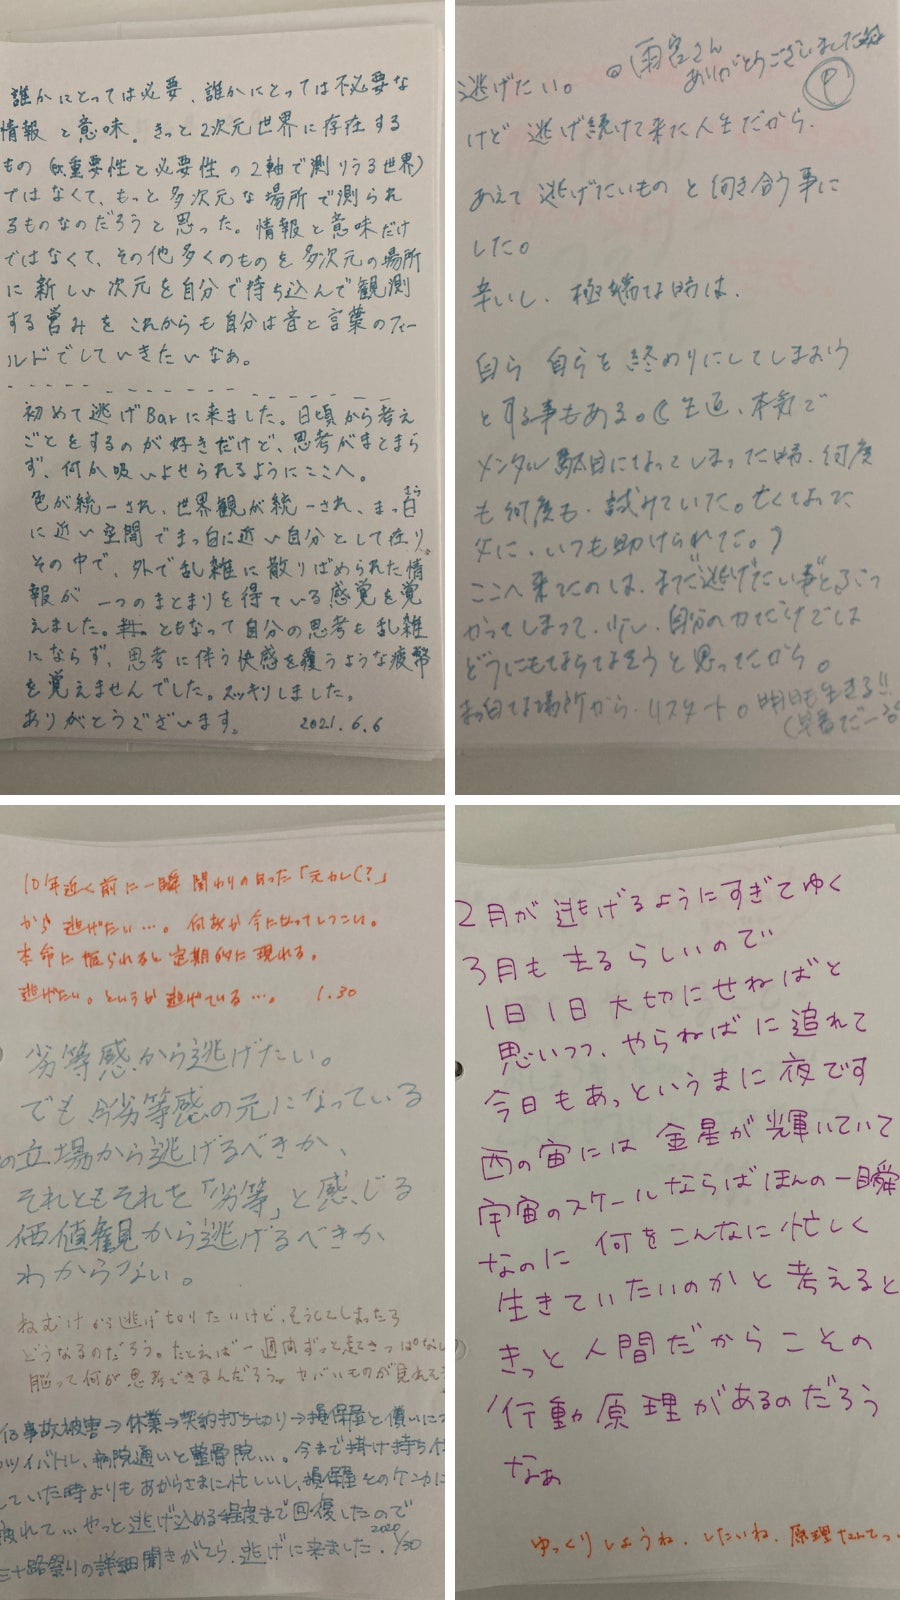 誰かにとっては必要、誰かにとっては不必要な
情報と意味。きっと2次元世界に存在する
もの(重要性と必要性の2軸で測りうる世界)
ではなくて、もっと多次元な場所で測られ
るものなのだろうと思った。情報と意味だけ
ではなくて、その他多くのものを多次元の場所
に新しい次元を自分で持ち込んで観測
する営みをこれからも自分は音と言葉のフィー
ルドでしていきたいなぁ。
初めて逃げBarに来ました。日頃から考え
ごとをするのが好きだけど、思考がまとまら
ず、何か吸いよせられるようにここへ。
色が統一され、世界観が統一され、まっ白
に近い空間でまっ白に近い自分として在り。
その中で、外で乱雑に散りばめられた情
報が一つのまとまりを得ている感覚を覚
えました。ともなって自分の思考も乱雑
にならず、思考に伴う快感を覆うような疲弊
を覚えませんでした。スッキリしました。
ありがとうございます。 2021.6.6
雨宮さん
ありがとうございました
逃げたい。
けど 逃げ続けて来た人生だから、
あえて 逃げたいもの と 向き合う事に
した。
辛いし、極端な時は、
自ら 自らを 終わりにしてしまおう
とする事もある。(先週、本気で
メンタル駄目になってしまった時、何度
も何度も、試みていた。亡くなった
父に、いつも助けられてた。)
ここへ来たのは、また逃げたい事とぶつ
かってしまって、少し、自分の力だけでは
どうにもならなそうと思ってたから。
まっ白な場所から、リスタート。明日も生きる!!
10年近く前に一瞬関わりのあった「元カレ(?)」
から逃げたい…。何故か今になってしつこい。
本命に振られると定期的に現れる。
逃げたい。というか逃げている…。 1.30
劣等感から逃げたい。
でも今劣等感の元になっている
の立場から逃げるべきか、
それともそれを「劣等」と感じる
価値観から逃げるべきか
わからない。
ねむけから逃げ切りたいけど、そうしてしまったら
どうなるのだろう。たとえば一週間ずっと起きっぱなし
脳って何が思考できるんだろう。ヤバいものが見れそ
事故被害→休業→契約打ち切り→損保屋と償いにつ
ツイバトル、病院通いと整骨院…。今まで掛け持ち
していた時よりもあからさまに忙しいし、損保屋とのケンカに
疲れて…やっと逃げ込める程度まで回復したので
三十路祭りの詳細聞きがてら、逃げに来ました。 2020 1/30
2月が逃げるようにすぎてゆく
3月も去るらしいので
1日1日大切にせねばと
思いつつ、やらねばに追れて
今日もあっというまに夜です
西の宙には金星が輝いていて
宇宙のスケールならばほんの一瞬
なのに何をこんなに忙しく
生きていたいのかと考えると
きっと人間だからことの
行動原理があるのだろう
なぁ
ゆっくりしようね、したいね、原理なんてっ